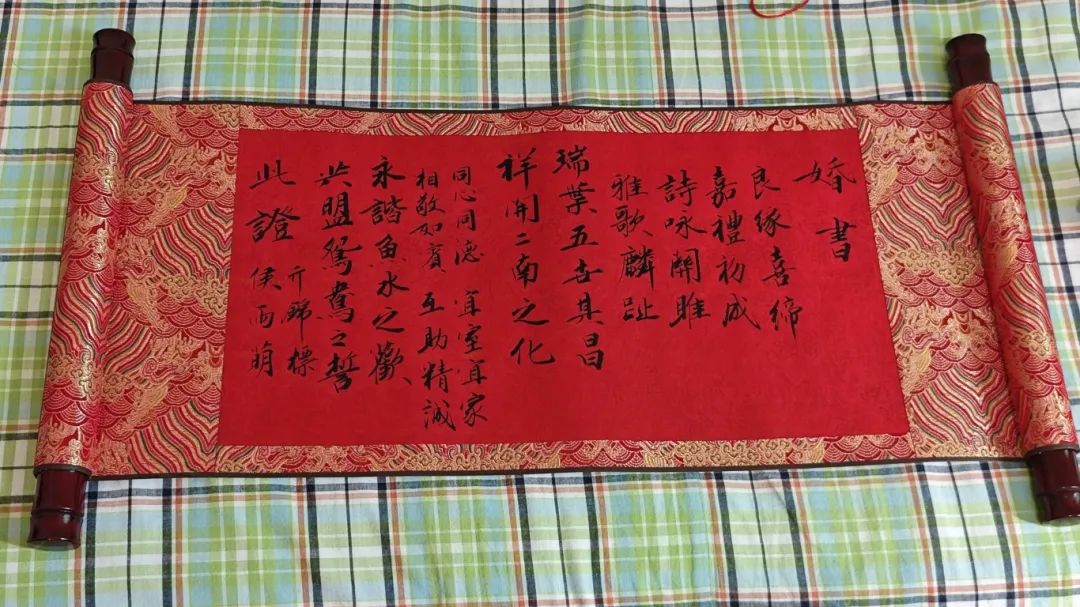 婚書
良缘喜缔
嘉禮初成
詩咏關雎
雅歌麟趾
瑞葉五世其昌
祥開二南之化
同心同德 宜室宜家
相敬如賓 互助精誠
永諧魚水之歡
共盟鴛鴦之誓
此證
亓錦標
侯雨萌